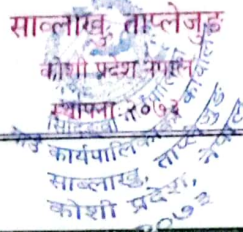 साब्लाखु, ताप्लेजुङ
कोशी प्रदेश नेपाल
स्थापना: २०७३
कार्यपालिका
साब्लाखु, ताप्लेजुङ
कोशी प्रदेश, नेपाल
२०७३